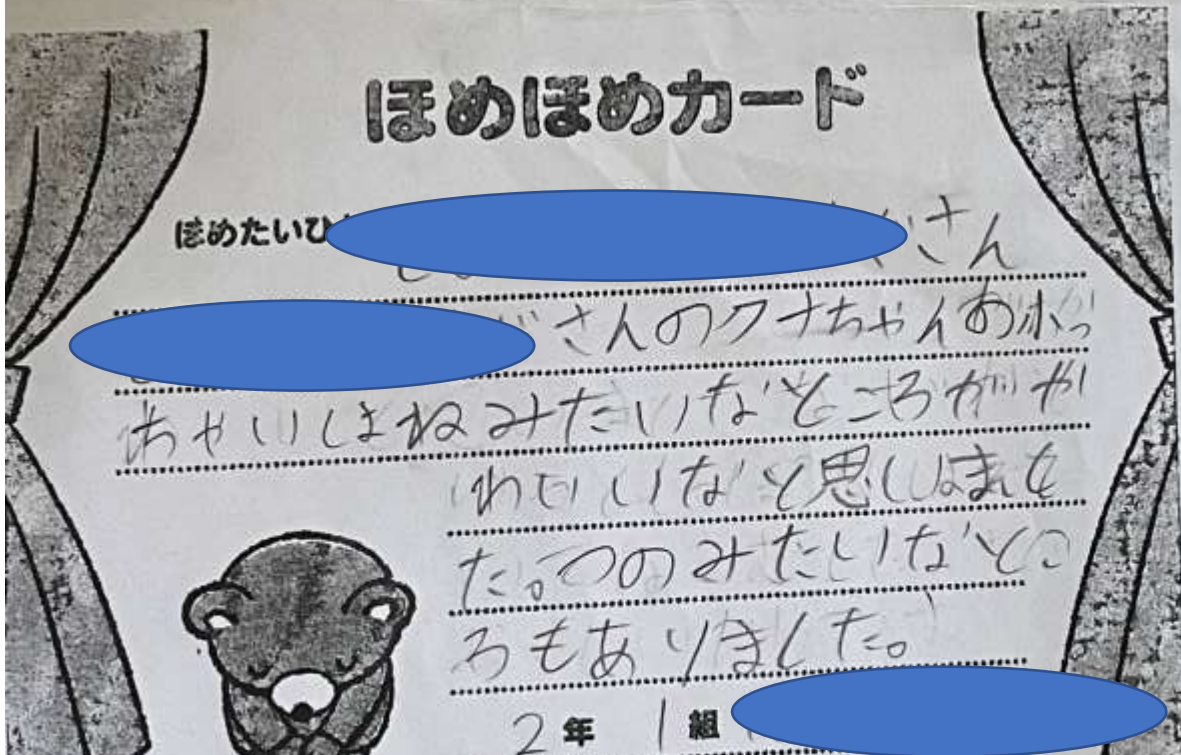 ほめほめカード
ほめたいひ
さん
さんのクナちゃんおホっ
ちゃいしまねみたいなところがや
わいいなと思しました
た。つのみたいなとこ
ろもありました。
2年 1組